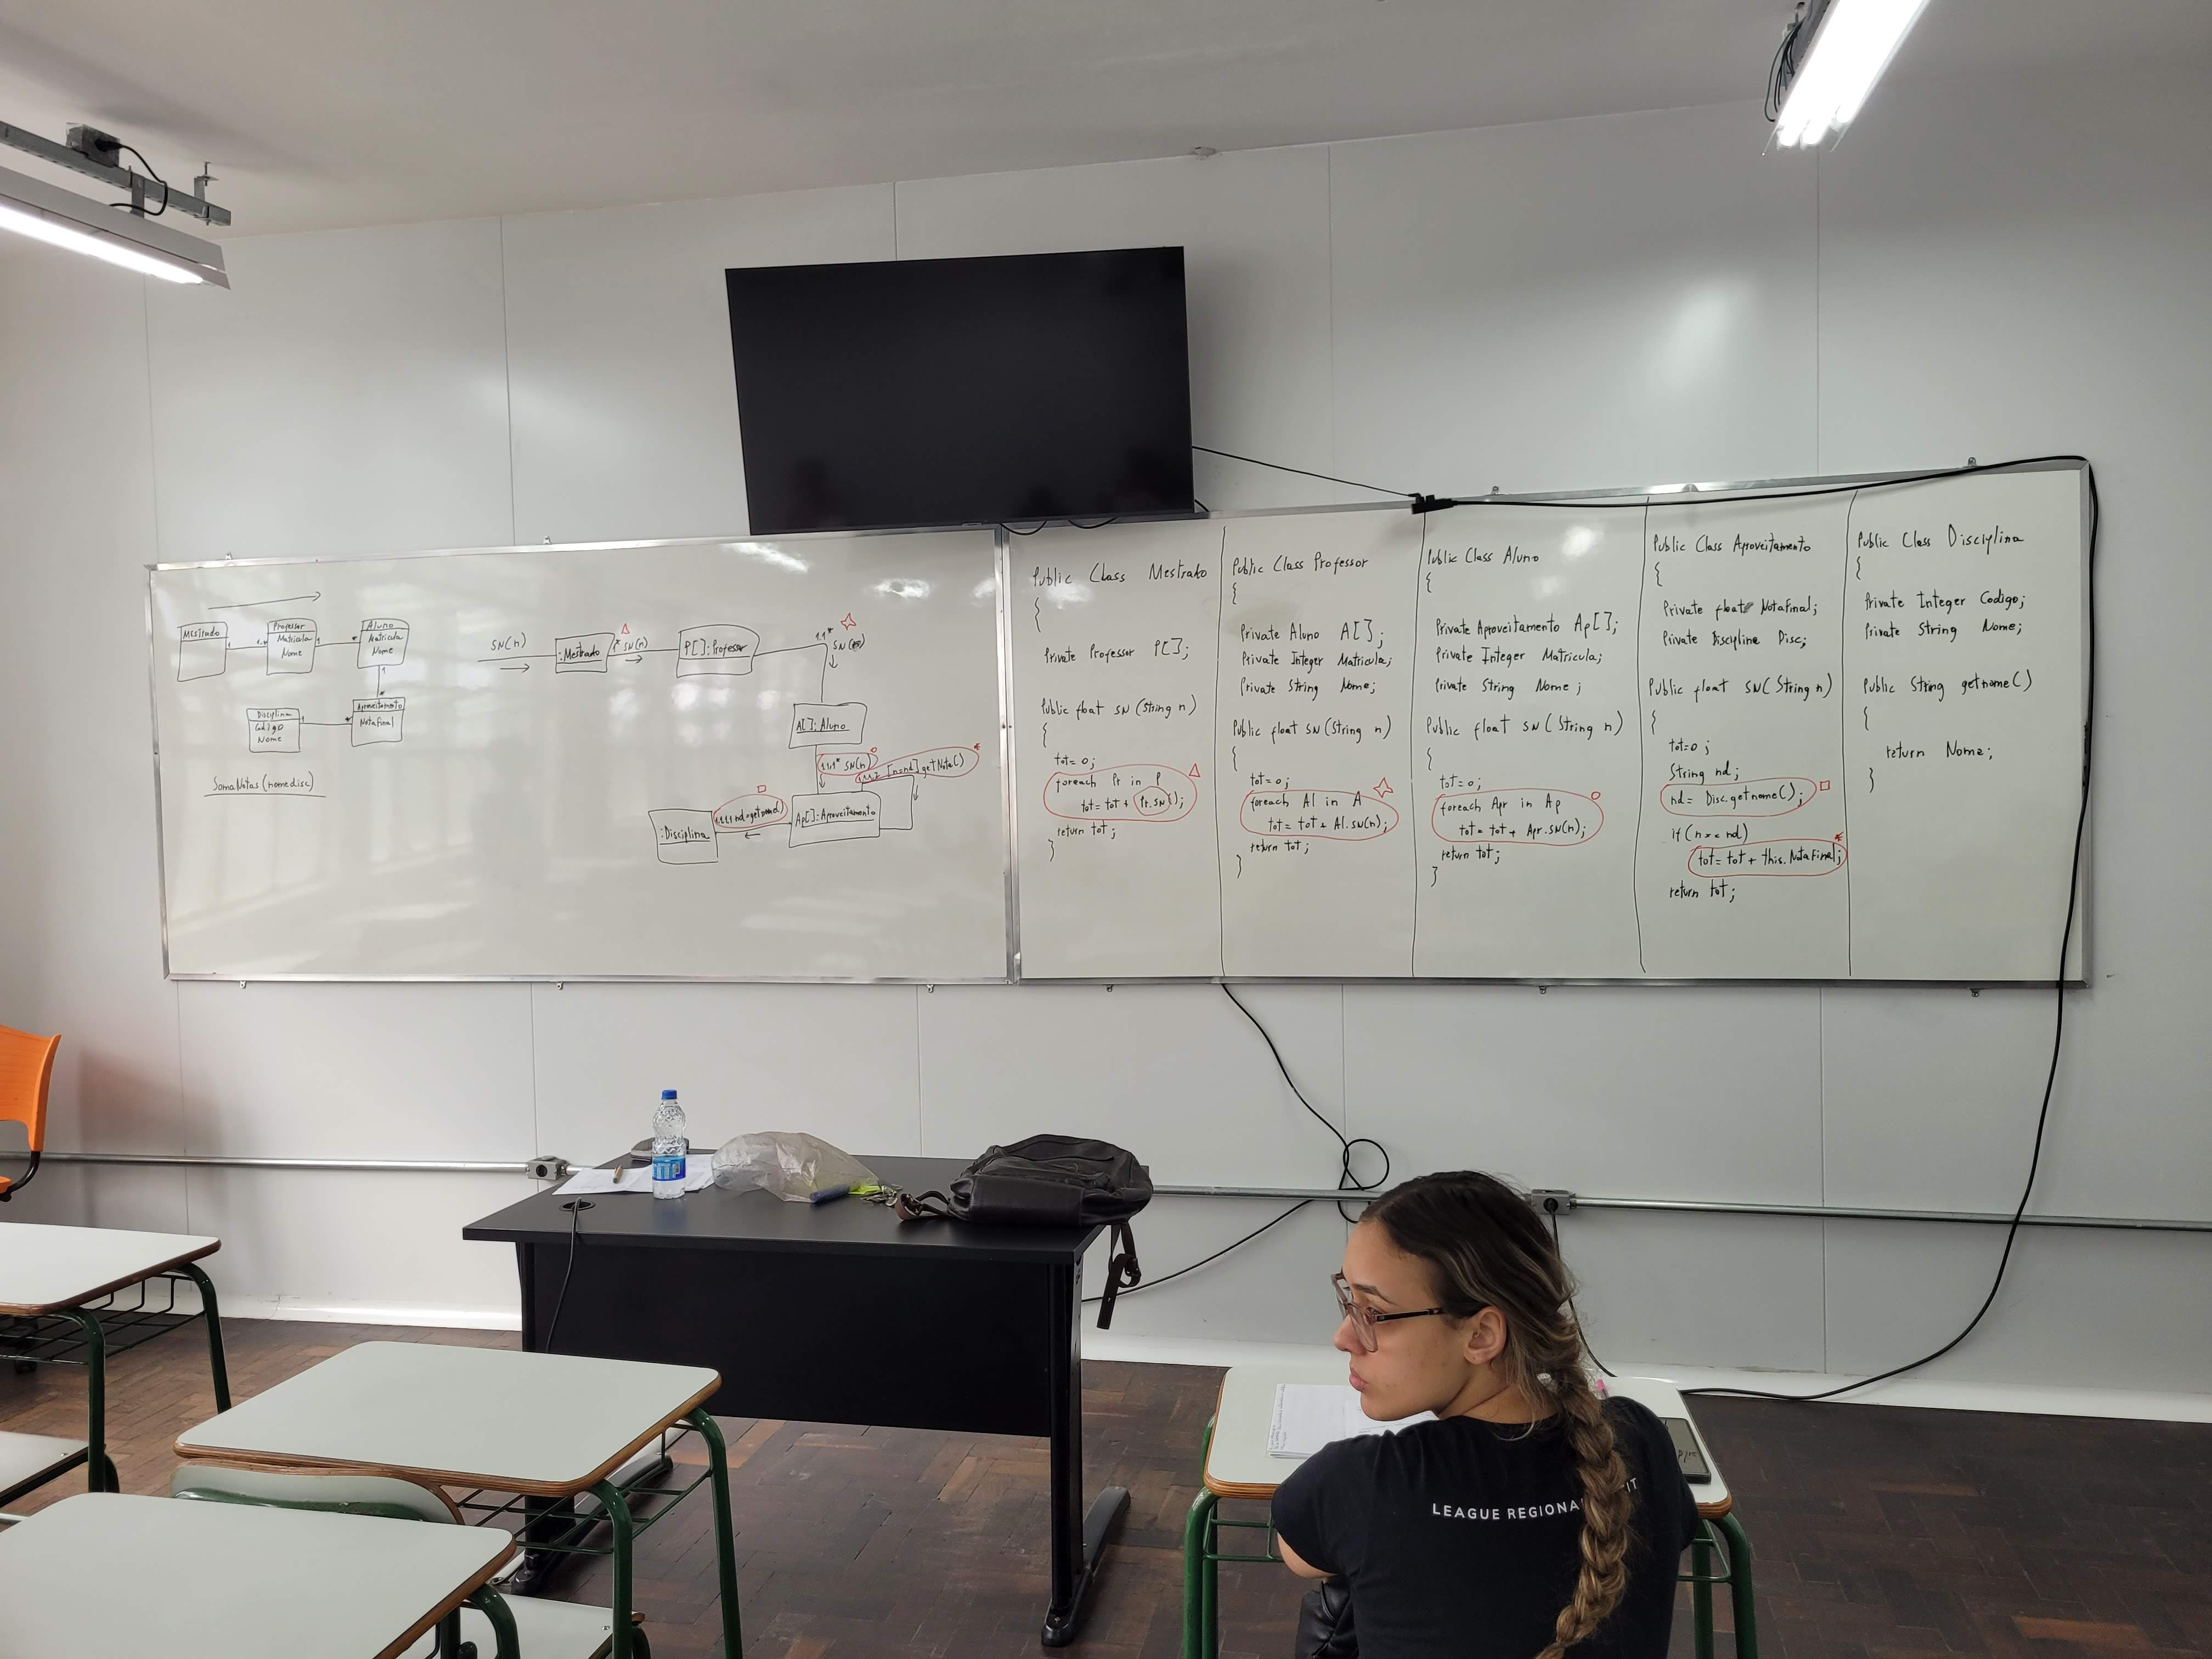 Mestrado
1
1..*
Professor
Matricula
Nome
1
*
Aluno
Matricula
Nome
1
*
Aproveitamento
NotaFinal
*
1
Disciplina
Codigo
Nome
SomaNotas(nomedisc)
SN(n)
:Mestrado
1* SN(n)
P[]:Professor
1.1*
A[]:Aluno
1.1.1* SN(n)
[n=nd] getNota()
Ap[]:Aproveitamento
:Disciplina
Public Class Mestrado
{
Private Professor P[];
Public float SN (String n)
{
tot=0;
foreach Pr in P
tot= tot + Pr.SN();
return tot;
}
Public Class Professor
{
Private Aluno A[];
Private Integer Matricula;
Private String Nome;
Public float SN (String n)
{
tot=0;
foreach Al in A
tot= tot + Al.SN(n);
return tot;
}
Public Class Aluno
{
Private Aproveitamento Ap[];
Private Integer Matricula;
Private String Nome;
Public float SN (String n)
{
tot=0;
foreach Apr in Ap
tot= tot + Apr.SN(n);
return tot;
}
Public Class Aproveitamento
{
Private float NotaFinal;
Private Disciplina Disc;
Public float SN (String n)
{
tot=0;
String nd;
nd= Disc.getnome();
if (n == nd)
tot= tot + this.NotaFinal;
return tot;
Public Class Disciplina
{
Private Integer Codigo;
Private String Nome;
Public String getnome()
{
return Nome;
}
LEAGUE REGIONAL